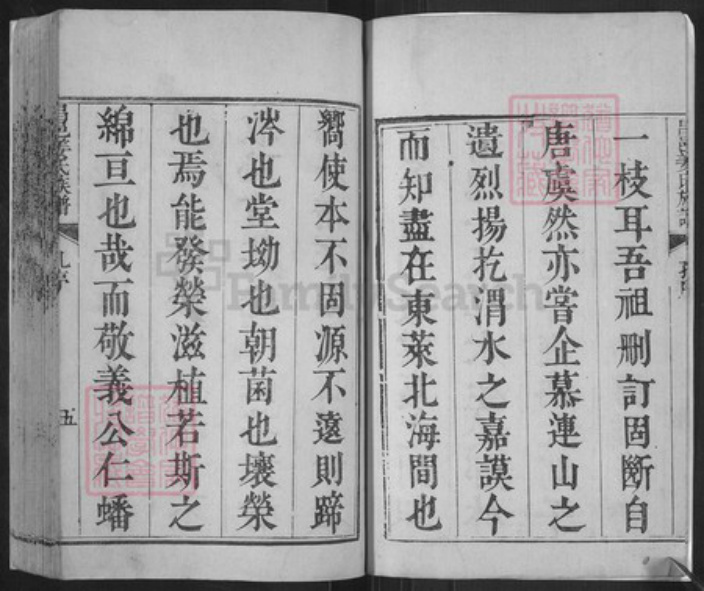 一枝耳吾祖刪訂固斷自
唐虞然亦嘗企慕連山之
遺烈揚扢渭水之嘉謨今
而知盡在東萊北海間也
嚮使本不固源不遠則蹄
涔也堂坳也朝菌也壤榮
也焉能發榮滋植若斯之
綿亘也哉而敬義公仁蟠
五
FamilySearch